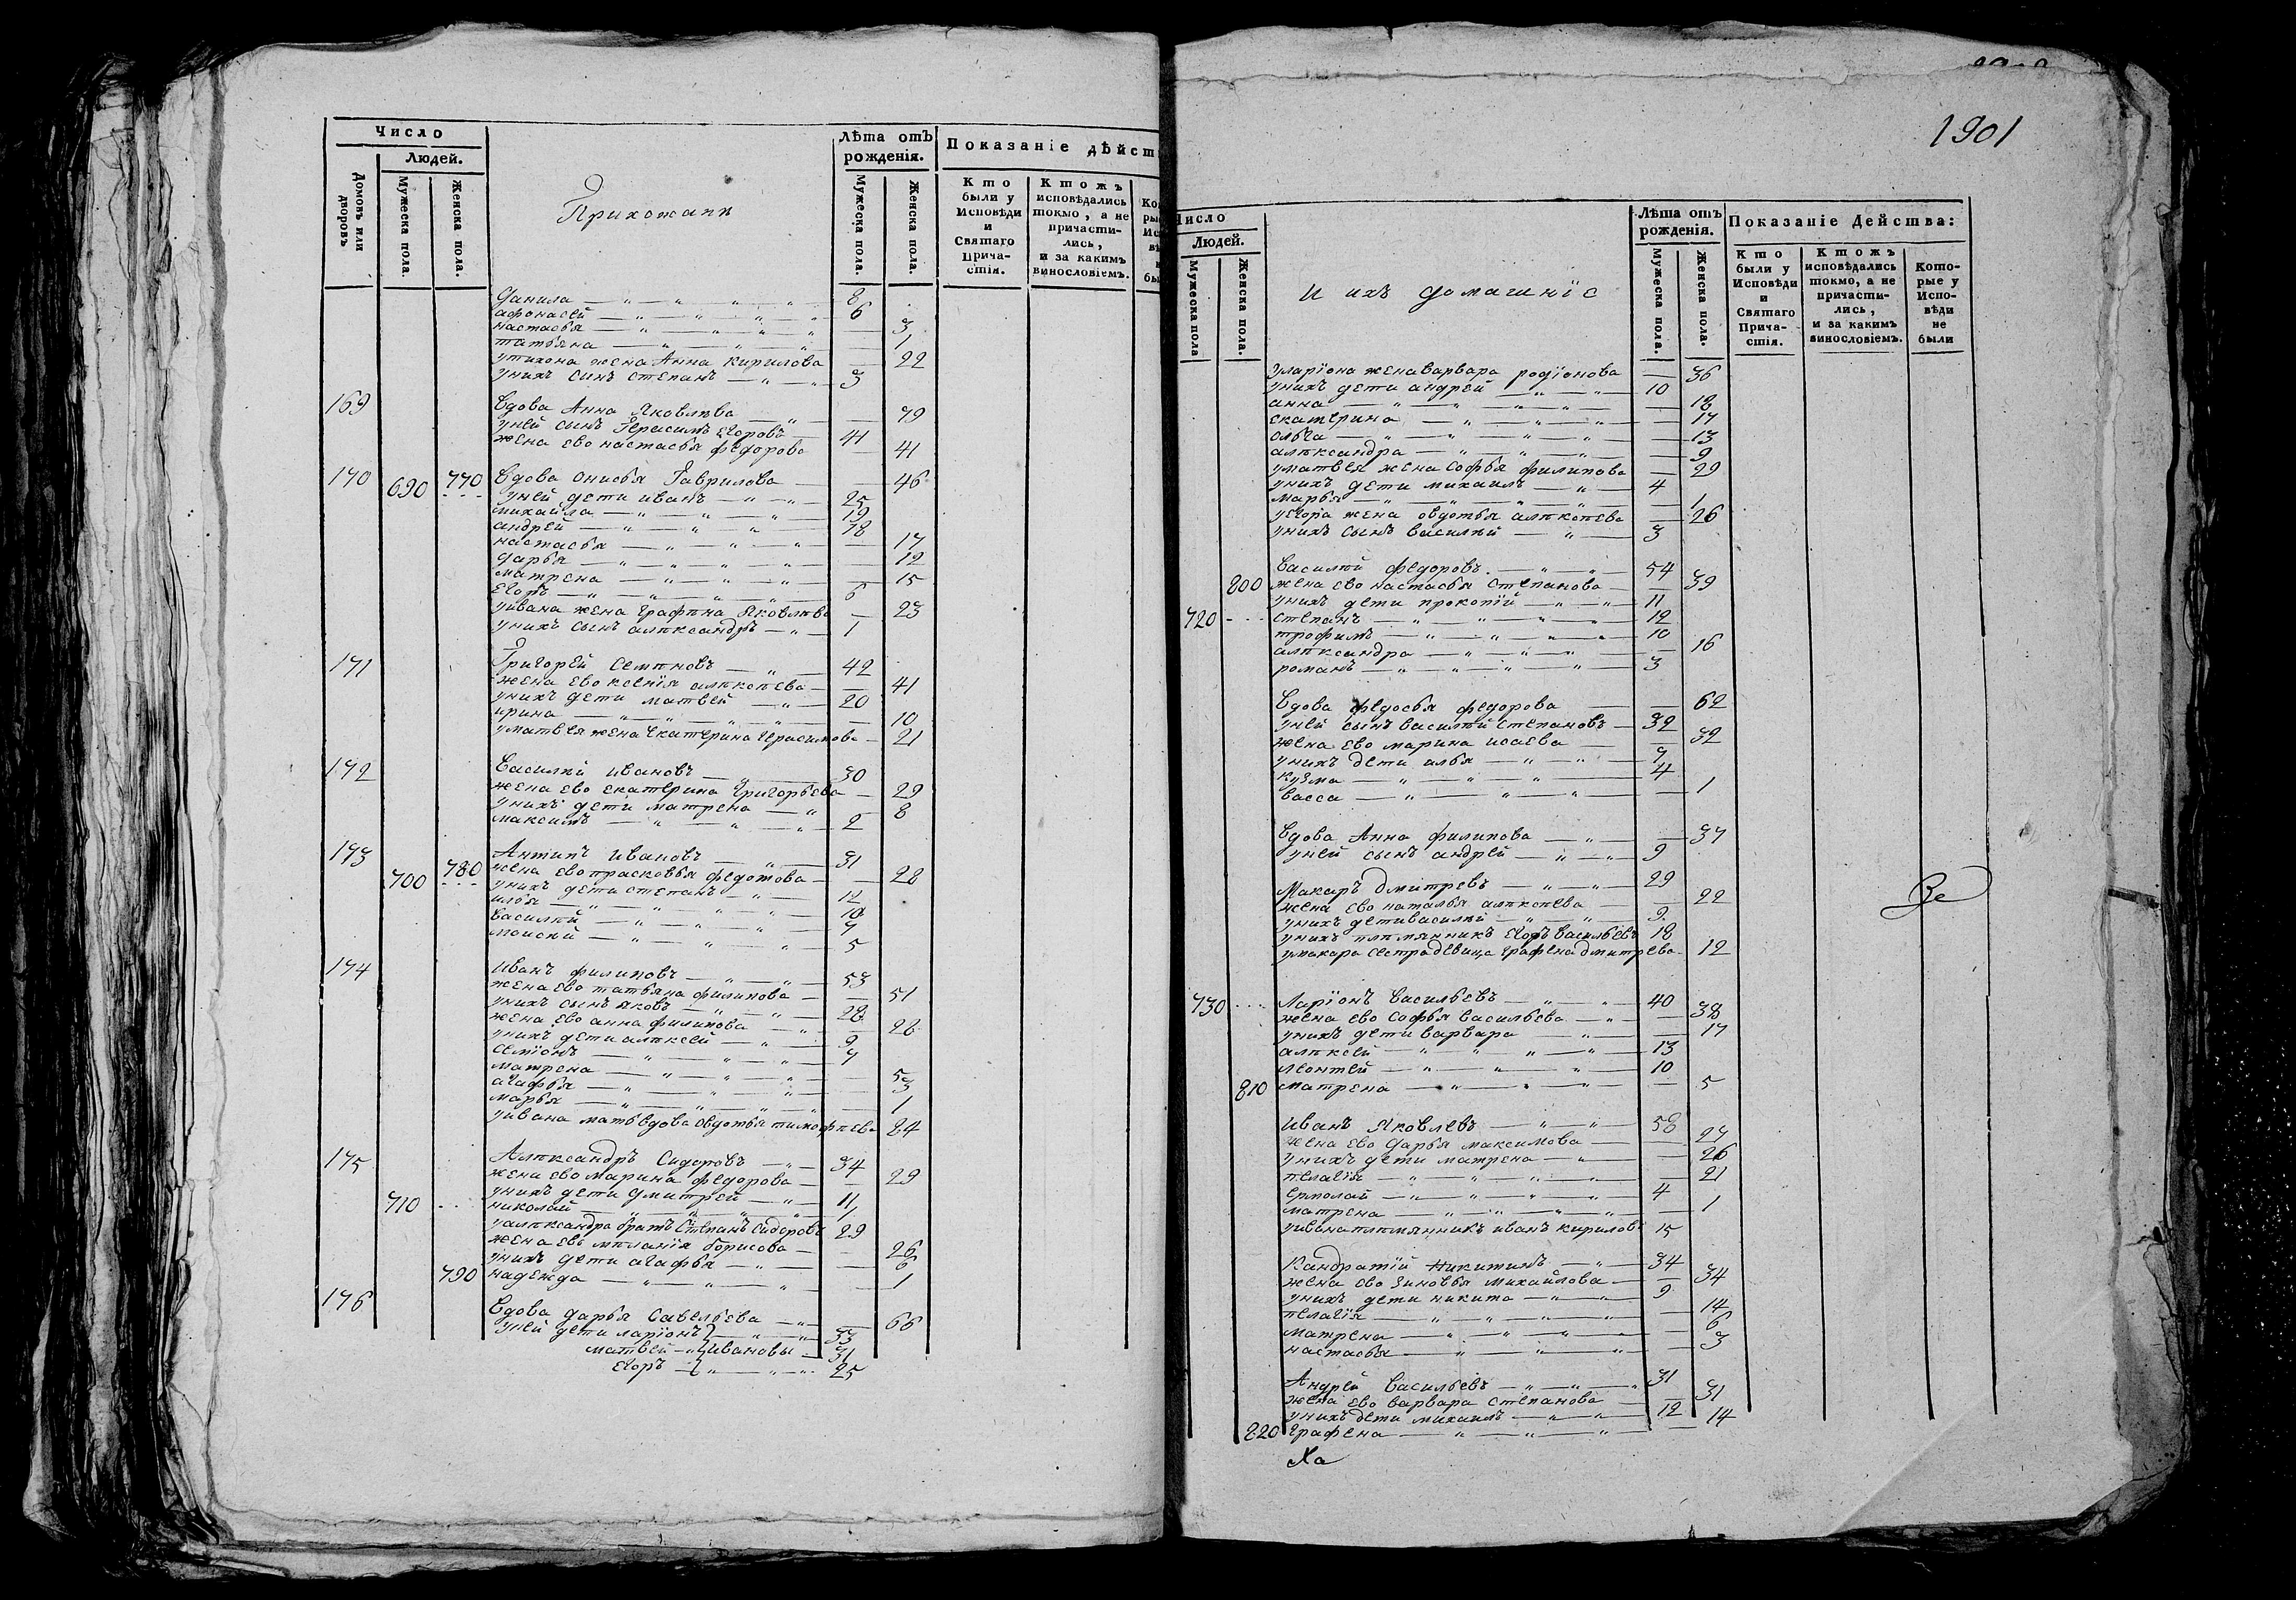 Число
Людей.
Домовъ или дворовъ
Мужеска пола.
Женска пола.
Прихожани
Лѣта отъ рожденія.
Мужеска пола.
Женска пола.
Показаніе дѣйст
Кто были у Исповѣди и Святаго Причастія.
Ктожъ исповѣдались токмо, а не причастились, и за какимъ винословіемъ.
Данила 8
афонасей 6
настасья 3
татьяна 1
утихона жена Анна Кирилова 22
унихъ сынъ степанъ 3
169 Вдова Анна Яковлѣва 79
уней сынъ Герасимъ Егоровъ 41
жена ево настасья федорова 41
170 690 770 Вдова Онисья Гаврилова 46
уней дети иванъ 25
михайла 19
андрей 18
настасья 17
дарья 12
матрена 15
Егоръ 6
уивана жена Графѣна Яковлѣва 23
унихъ сынъ алѣксандръ 1
171 Григорей Семѣновъ 42
жена ево ксенїя алѣксѣева 41
унихъ дети матвей 20
ирина 10
уматвея жена Екатерина Герасимова 21
172 Василѣй Ивановъ 30
жена ево екатерина Григорьева 29
унихъ дети матрена 8
максимъ 2
173 Антипъ Ивановъ 31
700 780 жена ево прасковья федотова 28
унихъ дети степанъ 12
илья 10
Василѣй 7
моисей 5
174 Иванъ филиповъ 53
жена ево татьяна филипова 51
унихъ сынъ яковъ 28
жена ево анна филипова 28
унихъ дети алѣксей 9
семїонъ 7
матрена 5
агафья 3
марья 1
уивана мать вдова овдотья тимофѣева 84
175 Алѣксандръ Сидоровъ 34
жена ево марина федорова 29
унихъ дети дмитрей 11
710 николай 1
уалѣксандра братъ Степанъ Сидоровъ 29
жена ево мѣланїя борисова 26
унихъ дети агафья 6
790 надежда 1
176 Вдова дарья Савельева 66
уней дети ларїонъ 33
матвей ивановы 31
Егоръ 25
1901
Число
Людей.
Мужеска пола
Женска пола.
И ихъ домашнїе
Лѣта отъ рожденія.
Мужеска пола.
Женска пола.
Показаніе Действа:
Кто были у Исповѣди и Святаго Причастія.
Ктожъ исповѣдались токмо, а не причастились, и за какимъ винословіемъ.
Которые у Исповѣди не были
уларїона жена варвара родїонова 36
унихъ дети андрей 10
анна 18
екатерина 17
ольга 13
алѣксандра 9
уматвея жена Софья филипова 29
унихъ дети михаилъ 4
марья 1
уегора жена овдотья алѣксѣева 26
унихъ сынъ василѣй 3
Василѣй федоровъ 54
800 жена ево настасья степанова 39
унихъ дети прокопїй 11
720 степанъ 12
трофимъ 10
алѣксандра 16
романъ 3
Вдова федосья федорова 62
уней сынъ василѣй степановъ 32
жена ево марина исаева 32
унихъ дети илья 7
кузма 4
васса 1
Вдова Анна филипова 37
уней сынъ андрей 9
Макаръ дмитревъ 29
жена ево наталья алѣксѣева 22
унихъ дети василѣй 2
унихъ плѣмянникъ Егоръ васильевъ 18
умакара сестра девица Графена дмитрева 12
730 Ларїонъ васильевъ 40
жена ево Софья васильева 38
унихъ дети варвара 17
алѣксей 13
леонтей 10
810 матрена 5
Иванъ Яковлевъ 58
жена ево дарья максимова 27
унихъ дети матрена 26
пелагїя 21
Ермолай 4
матрена 1
уивана плѣмянникъ иванъ кириловъ 15
Кандратїй Никитинъ 34
жена ево зиновья михайлова 34
унихъ дети никита 9
пелагїя 14
матрена 6
настасья 3
Андрей васильевъ 31
жена ево варвара степанова 31
унихъ дети михаилъ 12
820 Графена 14